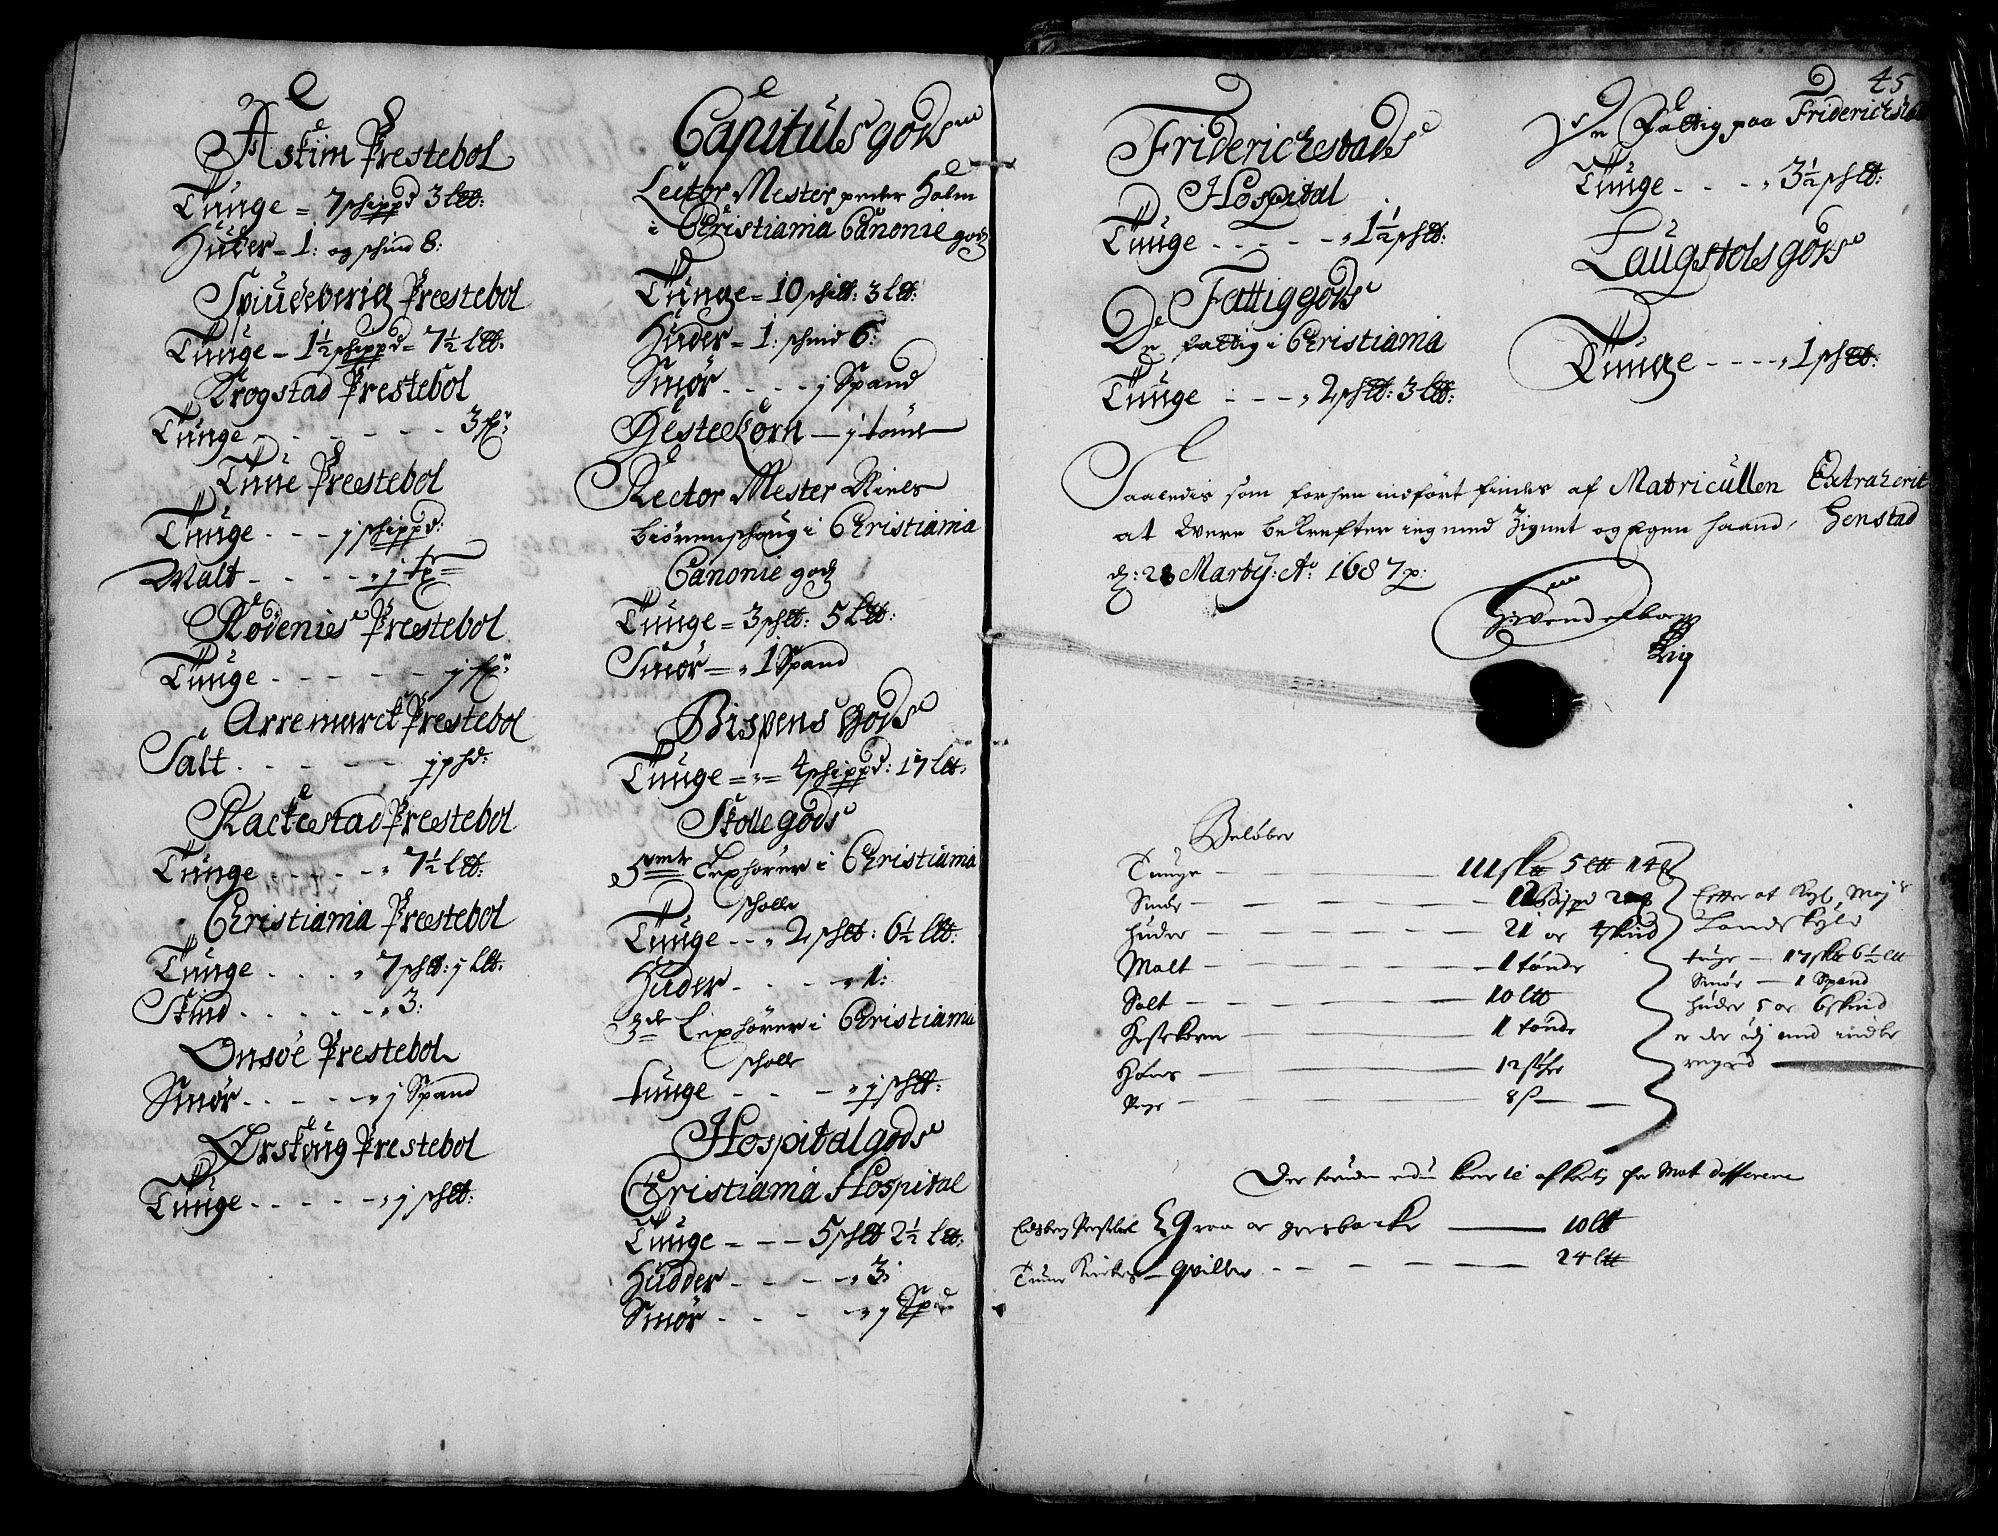 Askim Prestebol
Tunge = 7 schippd 3 ltt:
Huder - 1: og schind 8:
Spiudeberig Prestebol
Tunge - 1½ schippd = 7½ ltt:
Krogstad Prestebol
Tunge - - - - - - 3 fr:
Tune Prestebol
Tunge - - - j schippd:
Malt - - - - -
Rødenies Prestebol
Tunge - - - - -
Arremarck Prestebol
Salt. - - - - -
Rackestad Prestebol
Tunge - - - - 7½ ltt:
Christiania Prestebol
Tunge - - - 7 schtt: j ltt:
Skind. - - - - - 3:
Onsøe Prestebol
Smør - - - - - j Spand
Ørskoug Prestebol
Tunge - - - - - j schtt:
Capituls gods
Lector Mester peder Holm
i Christiania Canonie gods
Tunge = 10 schtt: 3 ltt:
Huder - 1: schind 6:
Smør. - - - - j Spand
Hestekorn - j tønde
Rector Mester Niels
biørenschoug i Christiania
Canonie gods
Tunge = 3 schtt: 5 ltt:
Smør - 1 Spand
Bispens Gods
Tunge = = 4 schippd: 17 ltt:
Skolle gods
5mte Lexhører i Christiania
scholle
Tunge - - 2 schtt: 6½ ltt:
Huder - - - - 1:
3de Lexhører i Christiania
scholle
tunge - - - - j schtt:
Hospital gods
Christiania Hospital
Tunge - - - 5 schtt 2½ ltt:
Hudder - - - - 3:
Smør - - - - - j Spd
45
Friderichestads
Hospital
Tunge - - - - - 1½ schtt:
Fattiggods
De fattig i Christiania
Tunge - - - 2 schtt: 3 ltt:
De Fattig paa Friderichstad
Tunge - - - 3½ schtt:
Laugstols gods
Tunge - - - - 1 schtt:
Saaledis som forhen indført findes af Matricullen Extraherit
at Være bekrefter ieg med Zignet og Egen haand, Henstad
d: 28 Marty: Ao 1687
Beløber
Tunge - - - 111 sktt 5 ltt 14
Smør - - - 12
Huder - - - 21 og 4 skind
Malt - - - 1 tønde
Salt - - - 10 ltt
Hestekorn - - - 1 tønde
Høns - - - 12
- - - 8 ß
Efter at Kgl, May:
Landskyld
tunge - 17 sktt 6½ ltt
Smør - 1 Spand
Huder 5 og 6 skind
er der med indbe
regnet
Der foruden for Mat differene
Eidsberg Prestebol og - 10 ltt
Tune Kirkes - - - - - 24 ltt